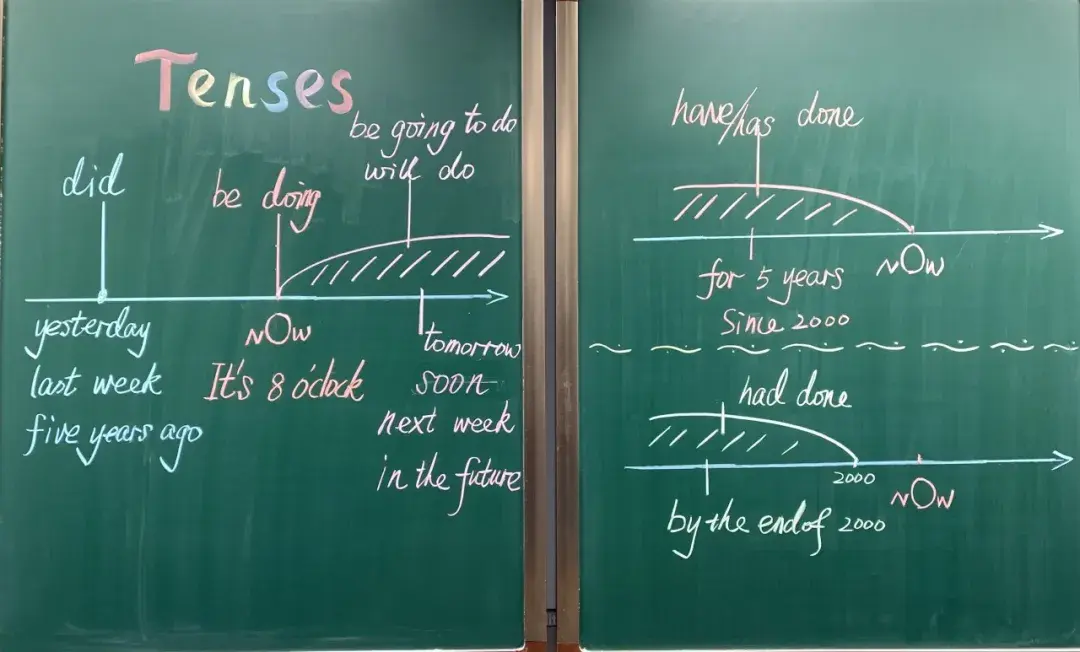 Tenses
be going to do
will do
did
be doing
yesterday
last week
five years ago
NOW
It's 8 o'clock
tomorrow
soon
next week
in the future
have/has done
for 5 years
Since 2000
NOW
had done
2000
NOW
by the end of 2000